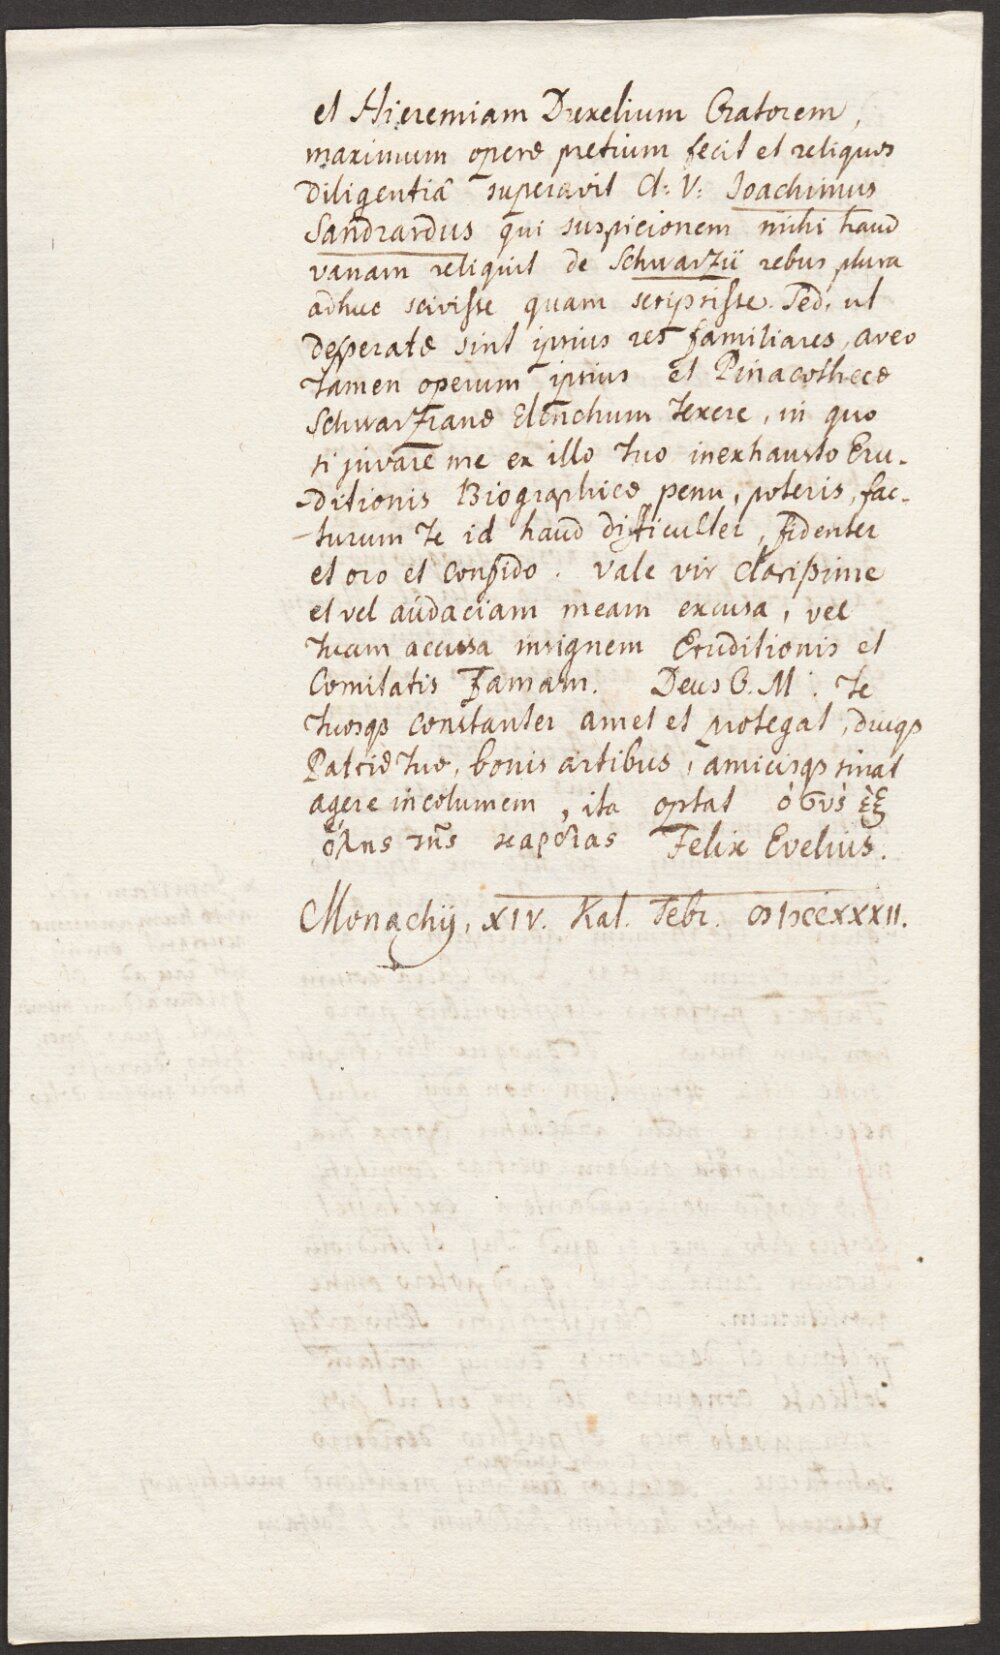 et Hieremiam Drexelium Oratorem,
maximum operæ pretium fecit et reliquos
diligentiâ superavit Cl: V: Ioachimus
Sandrardus qui suspicionem mihi haud
vanam reliquit de Schwarzii rebus plura
adhuc scivisse quam scripsisse. Sed, ut
desperatæ sint ipsius res familiares, aveo
tamen operum ipsius et Pinacothecæ
Schwarzianæ Elenchum texere, in quo
si juvare me ex illo tuo inexhausto Eru-
-ditionis Biographicæ penu, poteris, fac-
-turum te id haud difficulter, fidenter
et oro et confido. Vale vir Clarissime
et vel audaciam meam excusa, vel
tuam accusa insignem Eruditionis et
Comitatis Famam. Deus O. M. te
tuosqs constanter amet et protegat, diuqs
Patriæ tuæ, bonis artibus, amicisqs sinat
agere incolumem, ita optat ὁ σὸς ἐξ
ὅλης τῆς καρδίας Felix Evelius.
Monachij, XIV. Kal. Febr. MDCCXXXII.